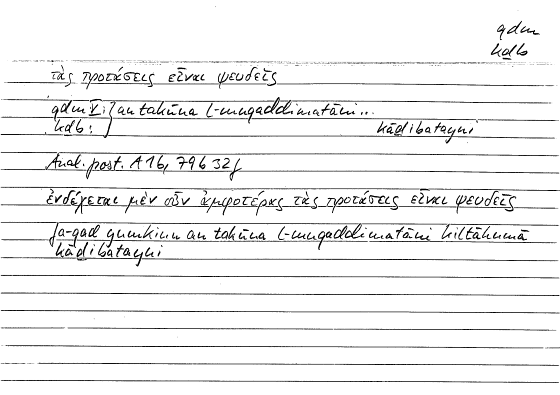 qdm
kḏb
τὰς προτάσεις εἶναι ψευδεῖς
qdm V: } an takūna l-muqaddimatāni...
kḏb: } kāḏibatayni
Anal. post. A 16, 79b 32f
ἐνδέχεται μὲν οὖν ἀμφοτέρας τὰς προτάσεις εἶναι ψευδεῖς
fa-qad yumkinu an takūna l-muqaddimatāni kiltāhumā
kāḏibatayni